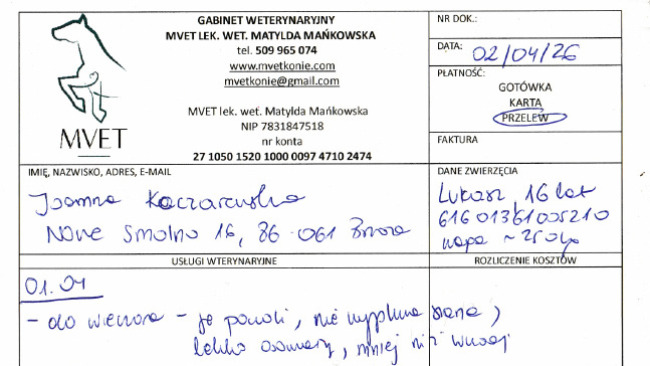 GABINET WETERYNARYJNY
MVET LEK. WET. MATYLDA MAŃKOWSKA
tel. 509 965 074
www.mvetkonie.com
mvetkonie@gmail.com
MVET lek. wet. Matylda Mańkowska
NIP 7831847518
nr konta
27 1050 1520 1000 0097 4710 2474
MVET
NR DOK.:
DATA: 02/04/26
PŁATNOŚĆ:
GOTÓWKA
KARTA
PRZELEW
FAKTURA
IMIĘ, NAZWISKO, ADRES, E-MAIL
Joanna
Nowe Smolno 16, 86-061 Brzoza
DANE ZWIERZĘCIA
Lukasz, 16 lat
61601361005210
waga ~
USŁUGI WTERYNARYJNE
ROZLICZENIE KOSZTÓW
01.04
- do wieczora - je powoli, nie wypluwa siana,
lekko osowiały, mniej niż wczoraj